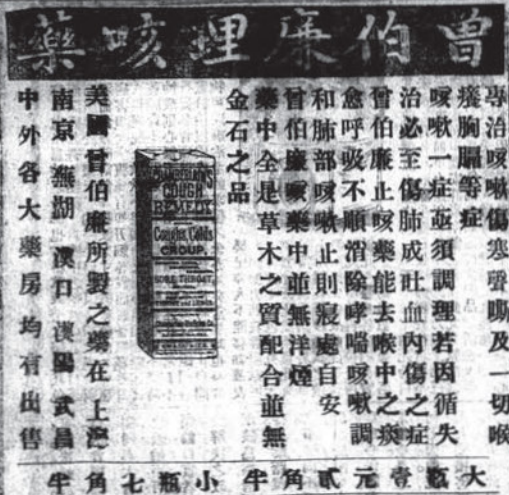 曾伯廉理咳藥
專治咳嗽傷寒聲嘶及一切喉
癢胸膈等症
咳嗽一症亟須調理若因循失
治必至傷肺成吐血內傷之症
曾伯廉止咳藥能去喉中之痰
愈呼吸不順消除哮喘咳嗽調
和肺部咳嗽止則寢處自安
曾伯廉咳藥中並無洋煙
藥中全是草木之質配合並無
金石之品
CHAMBERLAIN'S
COUGH
REMEDY
Coughs, Colds
CROUP,
SORE THROAT,
美國曾伯廉所製之藥在上海
南京 蕪湖 漢口 漢陽 武昌
中外各大藥房均有出售
大瓶壹元貳角半 小瓶七角半